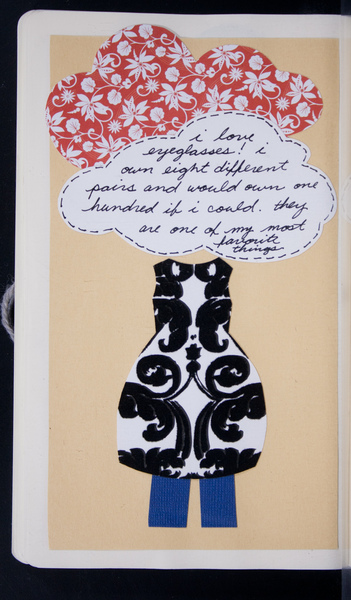 i love
eyeglasses! i
own eight different
pairs and would own one
hundred if i could. they
are one of my most
favorite
things